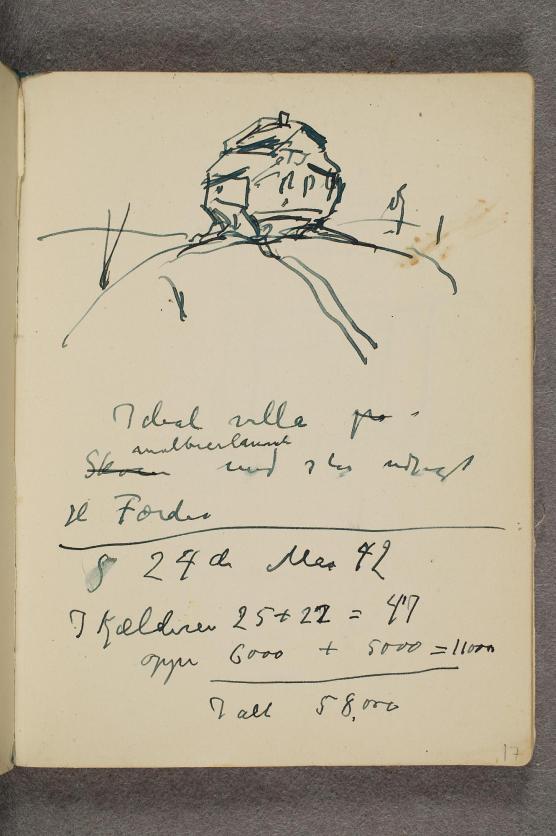 Ideal villa på
Skoen
med stor udsigt
til Færder
24 de Mai 42
I Kjælderen 25+22 = 47
oppe 6000 + 5000 = 11000
I alt 58,000
17